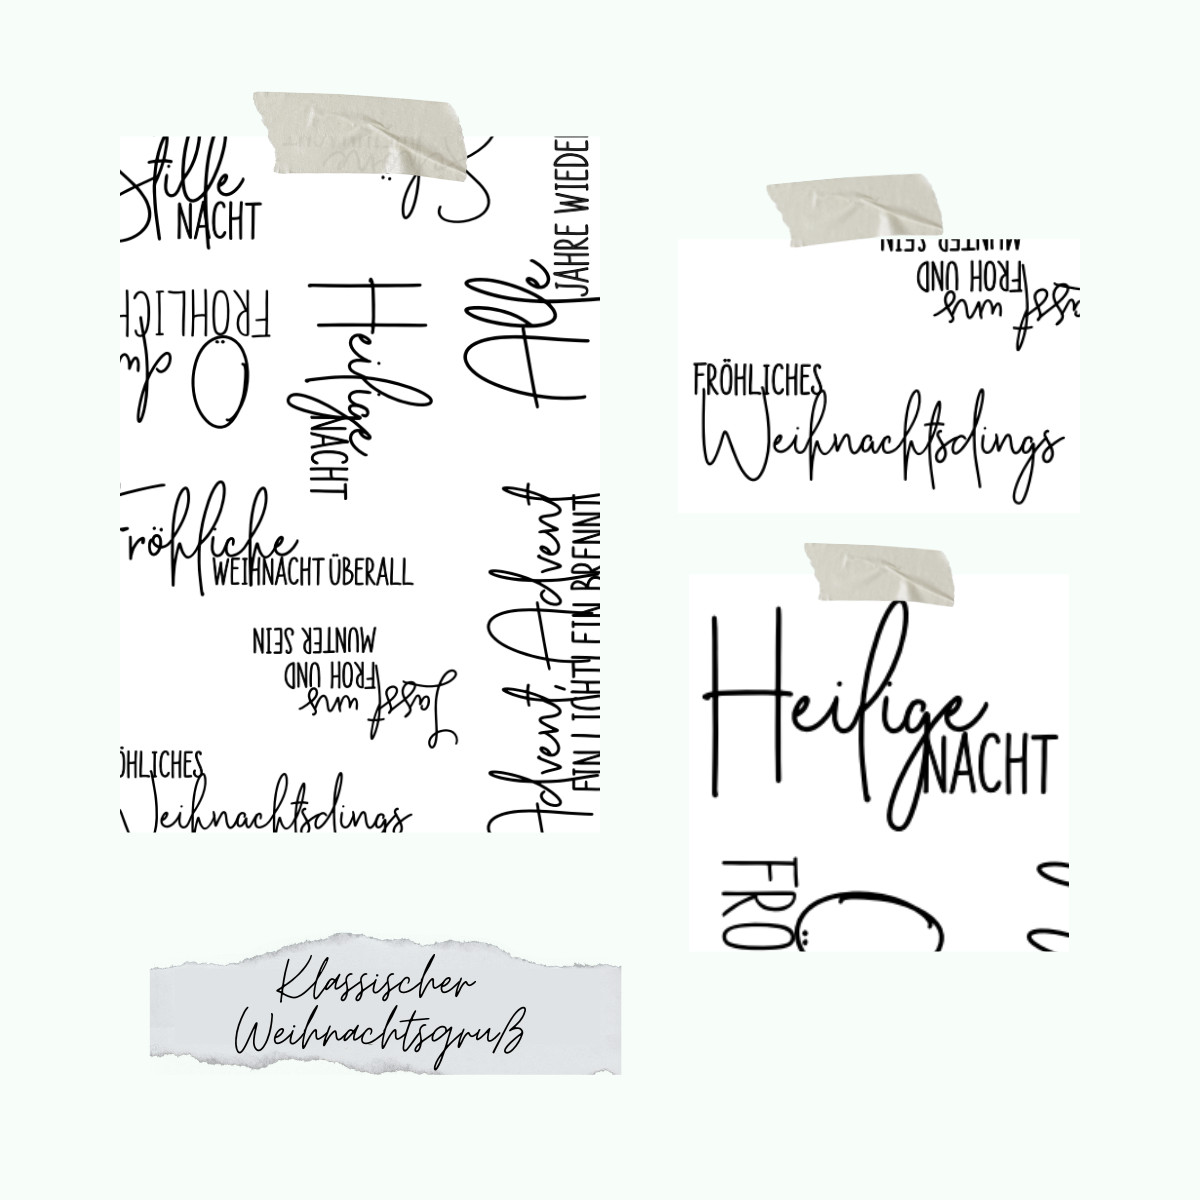 Stille
NACHT
JAHRE WIEDER
Alle
FRÖHLICH
O du
Heilige
NACHT
Fröhliche
WEIHNACHT ÜBERALL
Advent, Advent
EIN LICHT EIN BRENNT
Lasst uns
FROH UND
MUNTER SEIN
ÖHLICHES
Weihnachtsdings
asst uns
FROH UND
MUNTER SEIN
FRÖHLICHES
Weihnachtsdings
Heilige
NACHT
FRÖ
O
Klassischer
Weihnachtsgruß